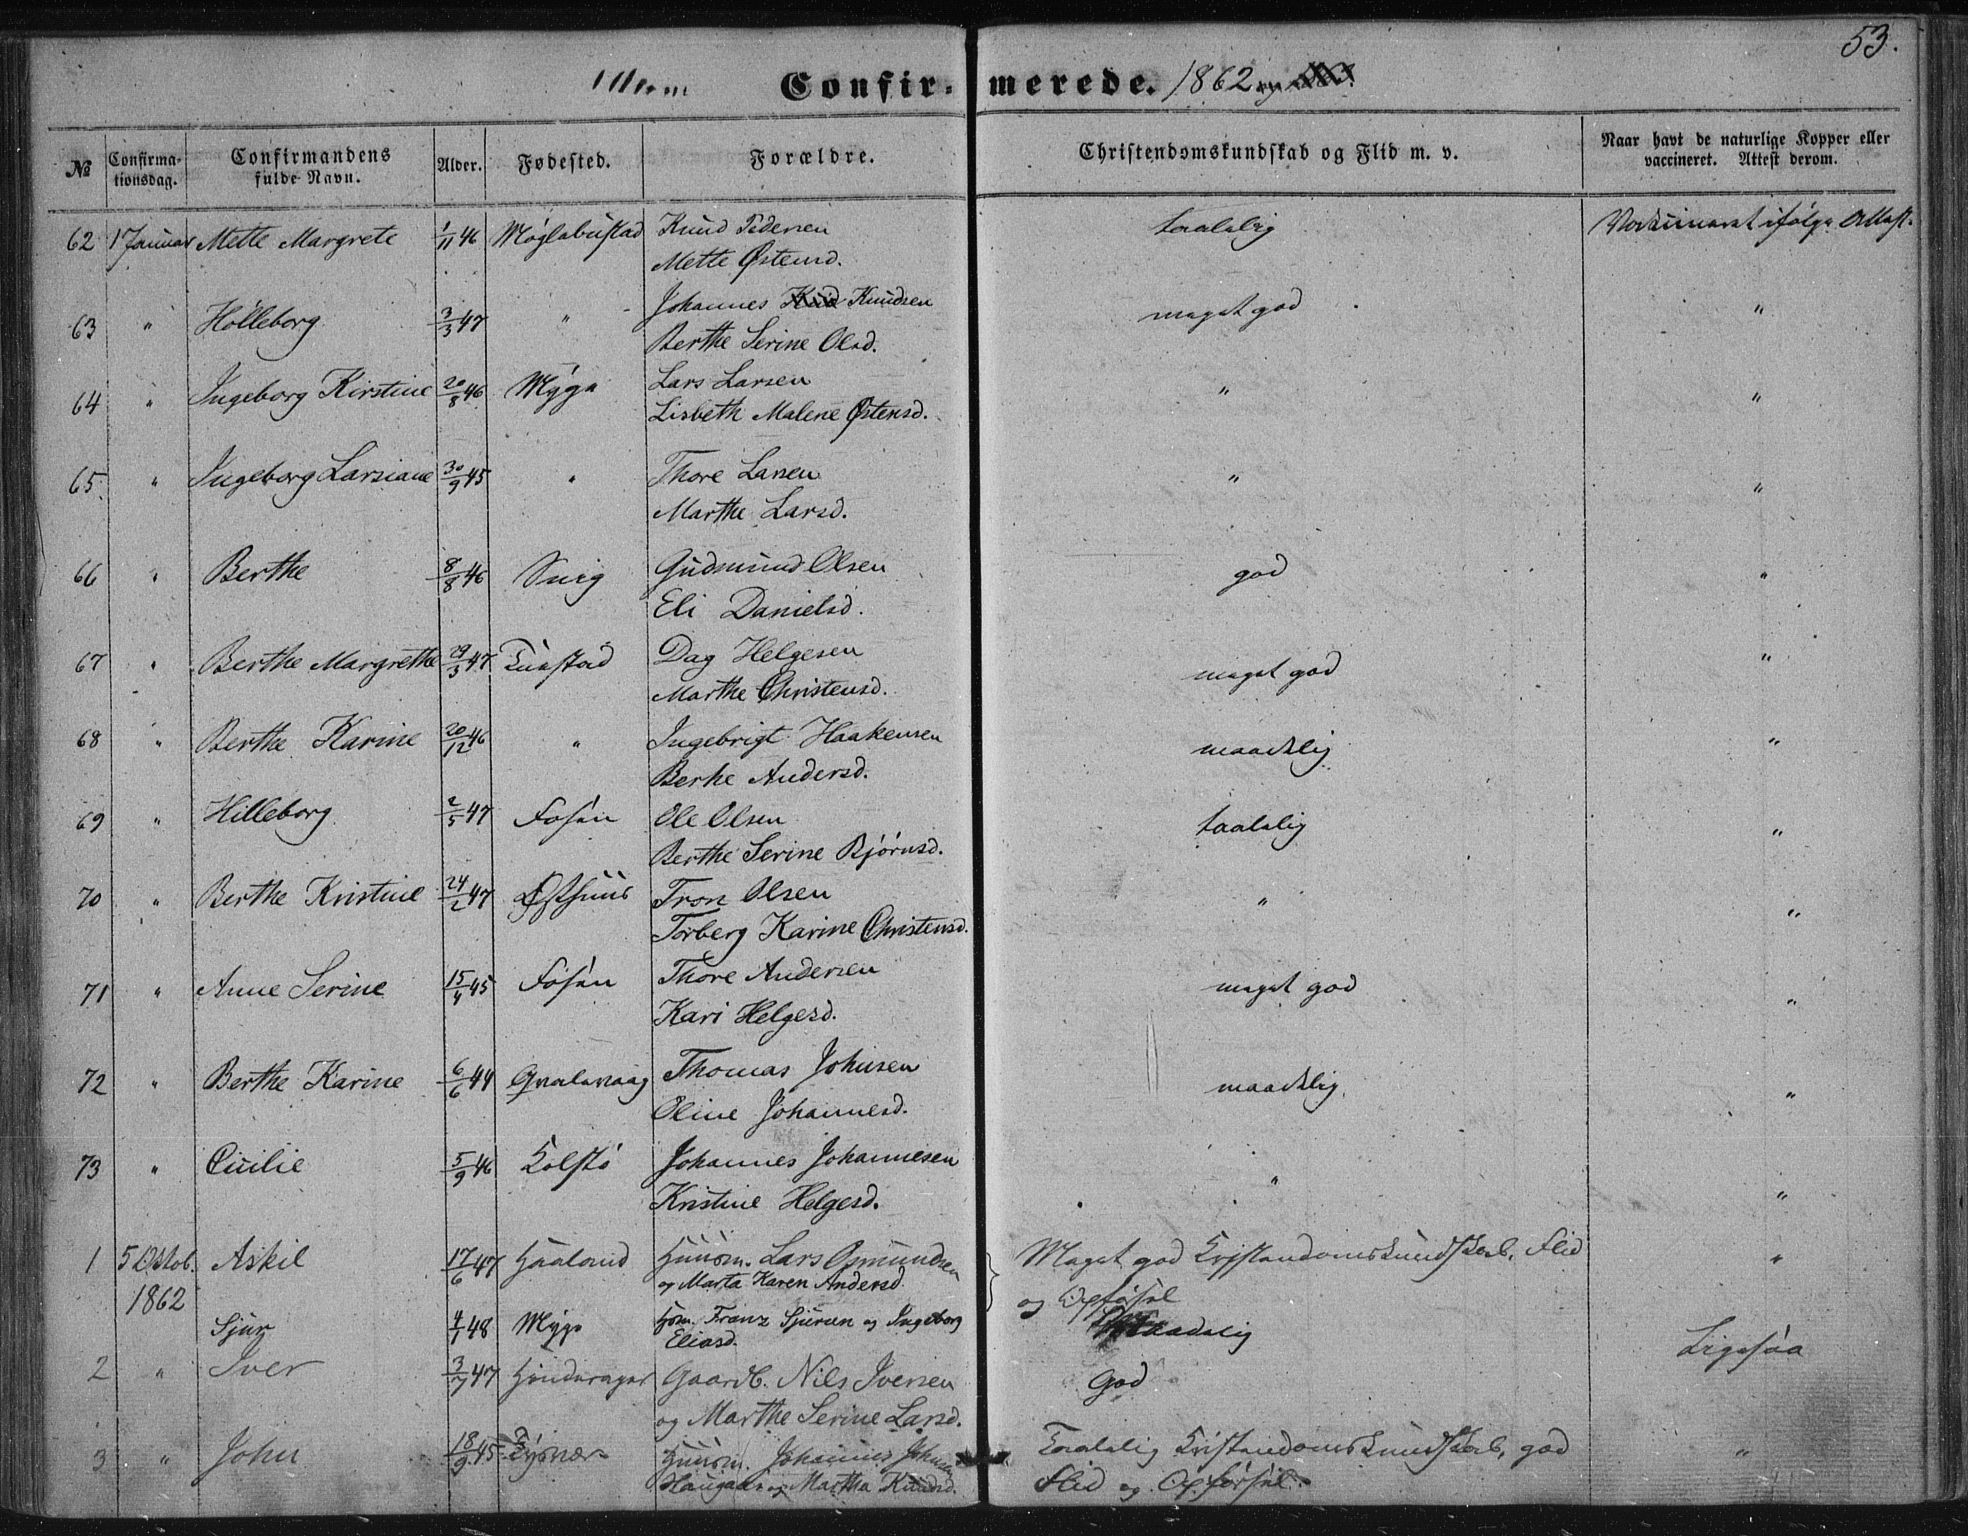 53.
Confirmerede. 1862 og
№ Confirmationsdag. Confirmandens fulde Navn. Alder. Fødested. Forældre. Christendomskundskab og Flid m. v. Naar havt de naturlige Kopper eller vaccineret. Attest derom.
62 1 Januar Mette Margrete 1/11 46 Møglebustad Knud Pedersen taalelig Vaksineret ifølge Attest.
Mette Østensd.
63 " Hølleborg 3/3 47 " Johannes Knud Knudsen meget god "
Berthe Serine Olsd.
64 " Ingeborg Kirstine 20/8 46 Myge Lars Larsen " "
Lisbeth Malene Østensd.
65. " Ingeborg Larsiane 30/9 45 " Thore Larsen " "
Marthe Larsd.
66 " Berthe 8/8 46 Snig Gudmund Olsen god "
Eli Danielsd.
67 " Berthe Margrethe 29/3 47 Dag Helgesen meget god "
Marthe Christensd.
68 " Berthe Karine 20/12 46 " Ingebrigt Haakensen maadelig "
Berhe Andersd.
69 " Hilleborg 2/5 47 Fosen Ole Olsen taalelig "
Berthe Serine Bjørnsd.
70 " Berthe Kristine 24/2 47 Østhuus Tron Olsen " "
Torberg Karine Christensd.
71 " Anne Serine 15/4 45 Fosen Thore Andersen meget god "
Kari Helgesd.
72 " Berthe Karine 6/6 44 Qvalavaag Thomas Johnsen maadelig "
Oline Johannesd.
73 " Cicilie 5/9 46 Kolstø Johannes Johannesen " "
Kristine Helgesd.
1 5 Oktob. Askil 17/6 47 Haaland Huusm. Lars Osmundsen Meget god Kristendomskundskab, Flid "
1862 og Marta Karen Andersd. og Opførsel
Sjur 4/1 48 Myge Hsm. Franz Sjursen og Ingeborg Maadelig
Eliasd. Ligesaa
2 " Iver 3/7 47 Gaardb. Nils Iversen God
og Marthe Serine Larsd.
3 " John 18/9 45 Huusm. Johannes Johnsen Taalelig Kristendomskundskab, god "
og Martha Knudsd. Flid og Opførsel.